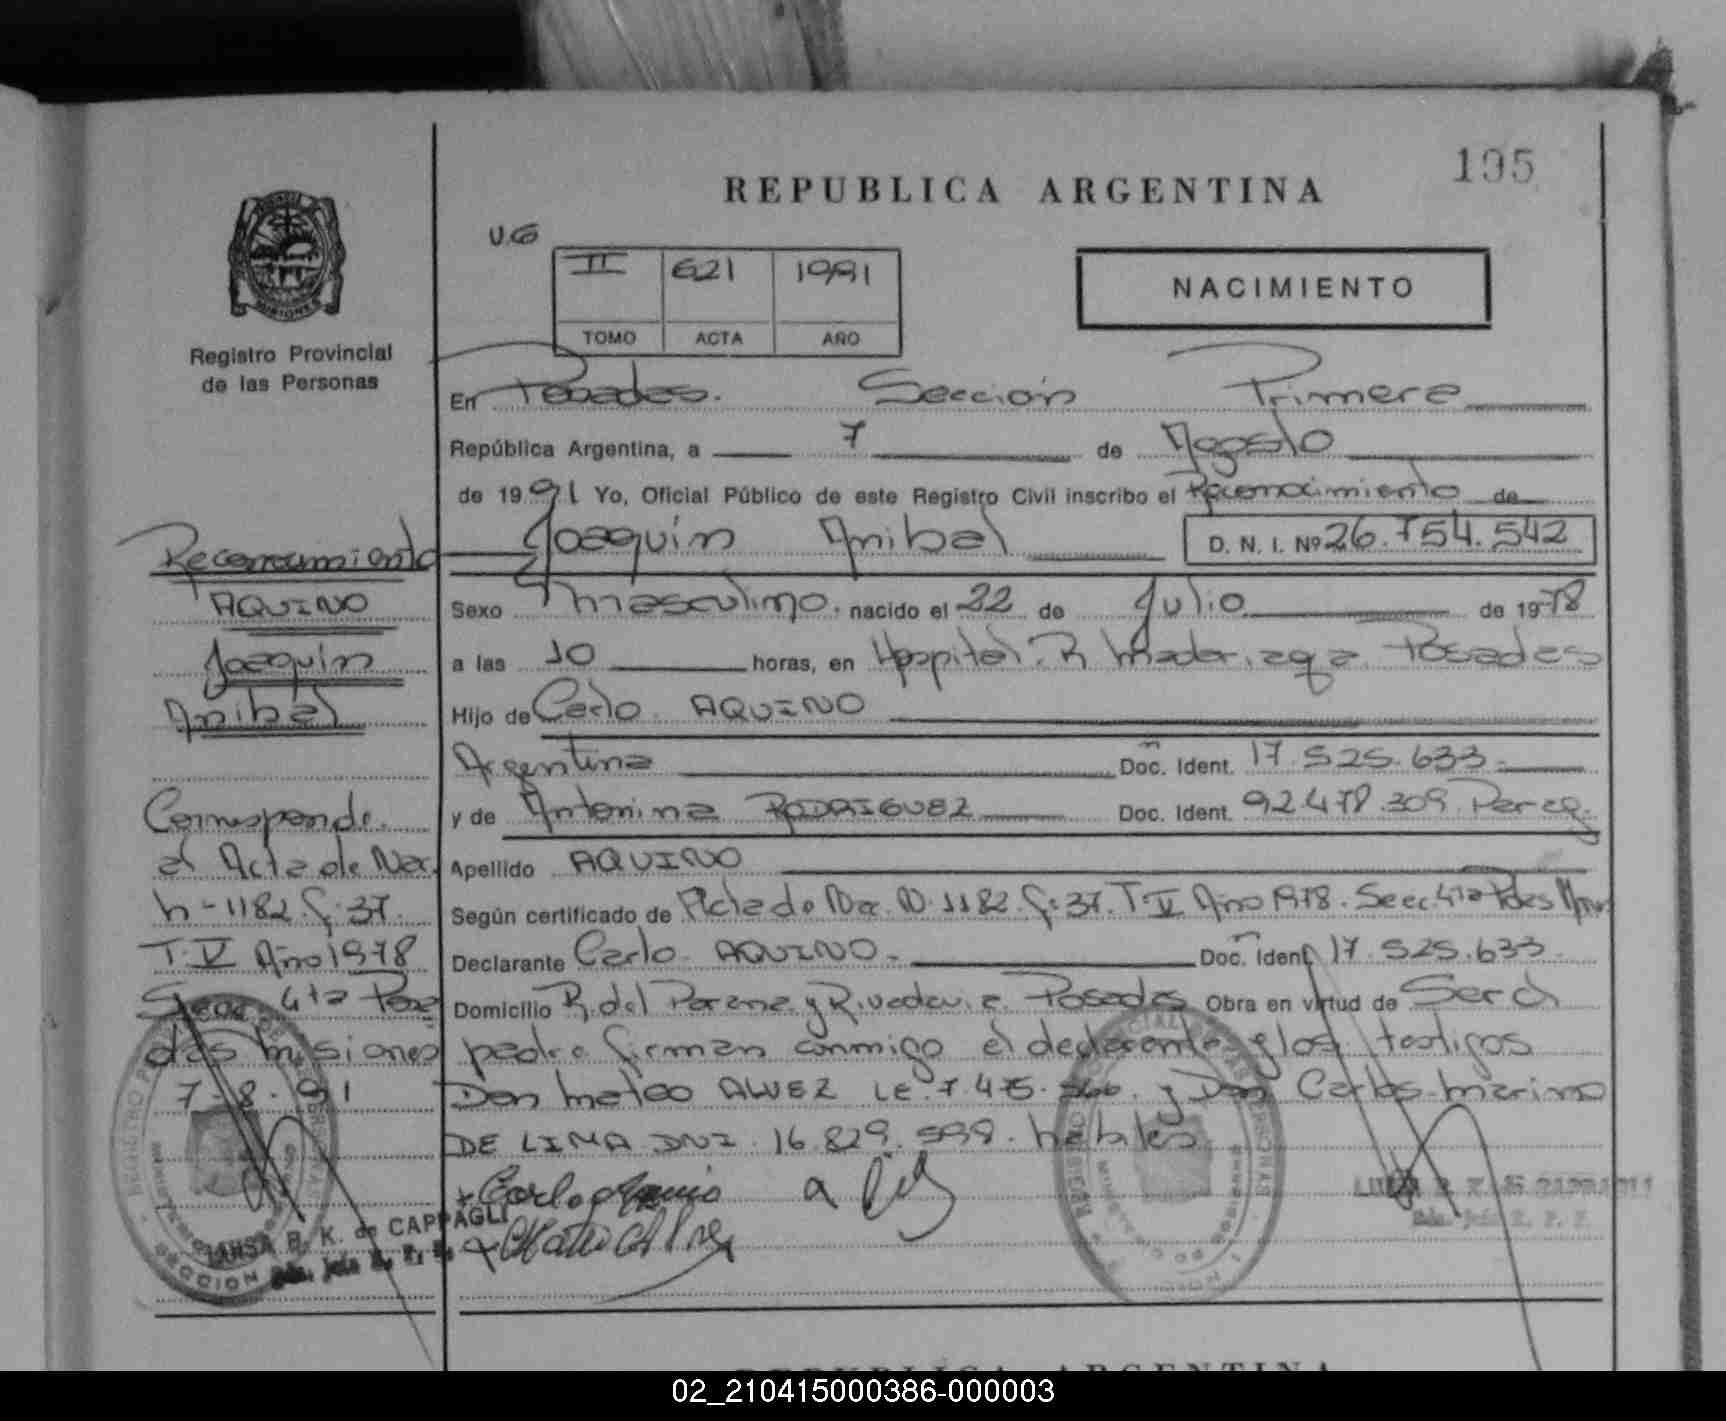 195
REPUBLICA ARGENTINA
U.G
II 621 1991
TOMO ACTA AÑO
NACIMIENTO
MISIONES
Registro Provincial
de las Personas
En Posadas. Sección Primera
República Argentina, a 7 de Agosto
de 1991 Yo, Oficial Público de este Registro Civil inscribo el Reconocimiento de
Joaquín Anibal D. N. I. Nº 26.754.542
Sexo masculino. nacido el 22 de Julio de 1978
a las 10 horas, en Hospital. R. Madariaga. Posadas
Hijo de Carlo AQUINO
Argentina Doc. Ident. 17.525.633.
y de Antonina RODRIGUEZ Doc. Ident. 92.478.309. Parag.
Apellido AQUINO
Según certificado de Acta de Nac. N. 1182. f: 37. T. V Año 1978. Secc. 4ta Pdas
Declarante Carlo AQUINO. Doc. Ident. 17.525.633.
Domicilio R. del Parana. y Rivadavia. Posadas Obra en virtud de Ser el
padre firman conmigo el declarante y los testigos
Don Mateo ALVEZ LE. 7.475. y Don Carlos Marino
DE LIMA DNI. 16.829.599. habiles
Reconocimiento
AQUINO
Joaquín
Anibal
Corresponde.
al Acta de Nac.
n-1182. f: 37.
T. V Año 1978
Secc 4ta Posa
das Misiones
7-8-91
B. K. de CAPPAGLI
02_210415000386-000003